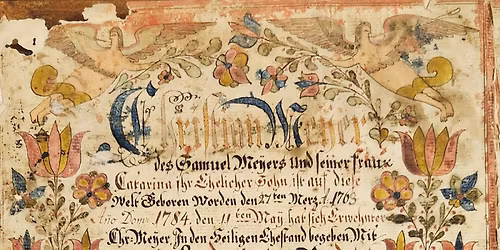 Christian Meyer
des Samuel Meyers und seiner fraux
Catarina ihr Ehelicher Sohn ist auf diese
Welt Geboren Worden den 27ten Merz. 1763
Año Dom: 1784. den 11ten May hat sich Erwehnter
Chr Meyer. In den Heiligen Ehestand begeben Mit